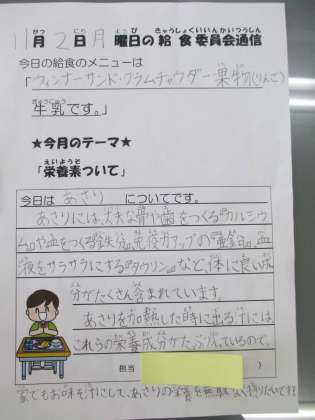 11月2日月曜日の給食委員会通信
今日の給食のメニューは
「ウィンナーサンド・クラムチャウダー・果物(りんご)
牛乳です。」
★今月のテーマ★
「栄養素ついて」
今日は あさり についてです。
あさりには、丈夫な骨や歯をつくる『カルシウ
ム』や血をつくる『鉄分』、免疫力アップの『亜鉛』、血
液をサラサラにする『タウリン』など、体に良い成
分がたくさん含まれています。
あさりを加熱した時に出る汁には、
これらの栄養成分がたっぷり ているので、
担当 )
家でもお味そ汁にして、あさりの栄養を無駄なく摂りたいです